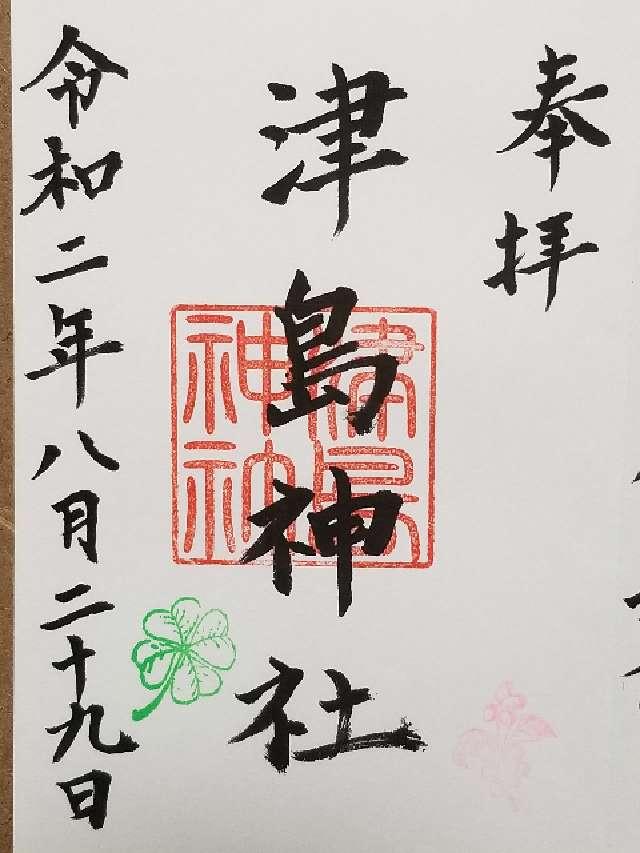 奉拝
津島神社
令和二年八月二十九日